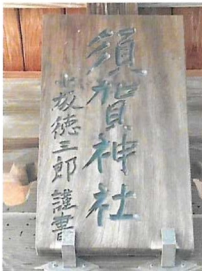 須賀神社
坂徳三郎 護書